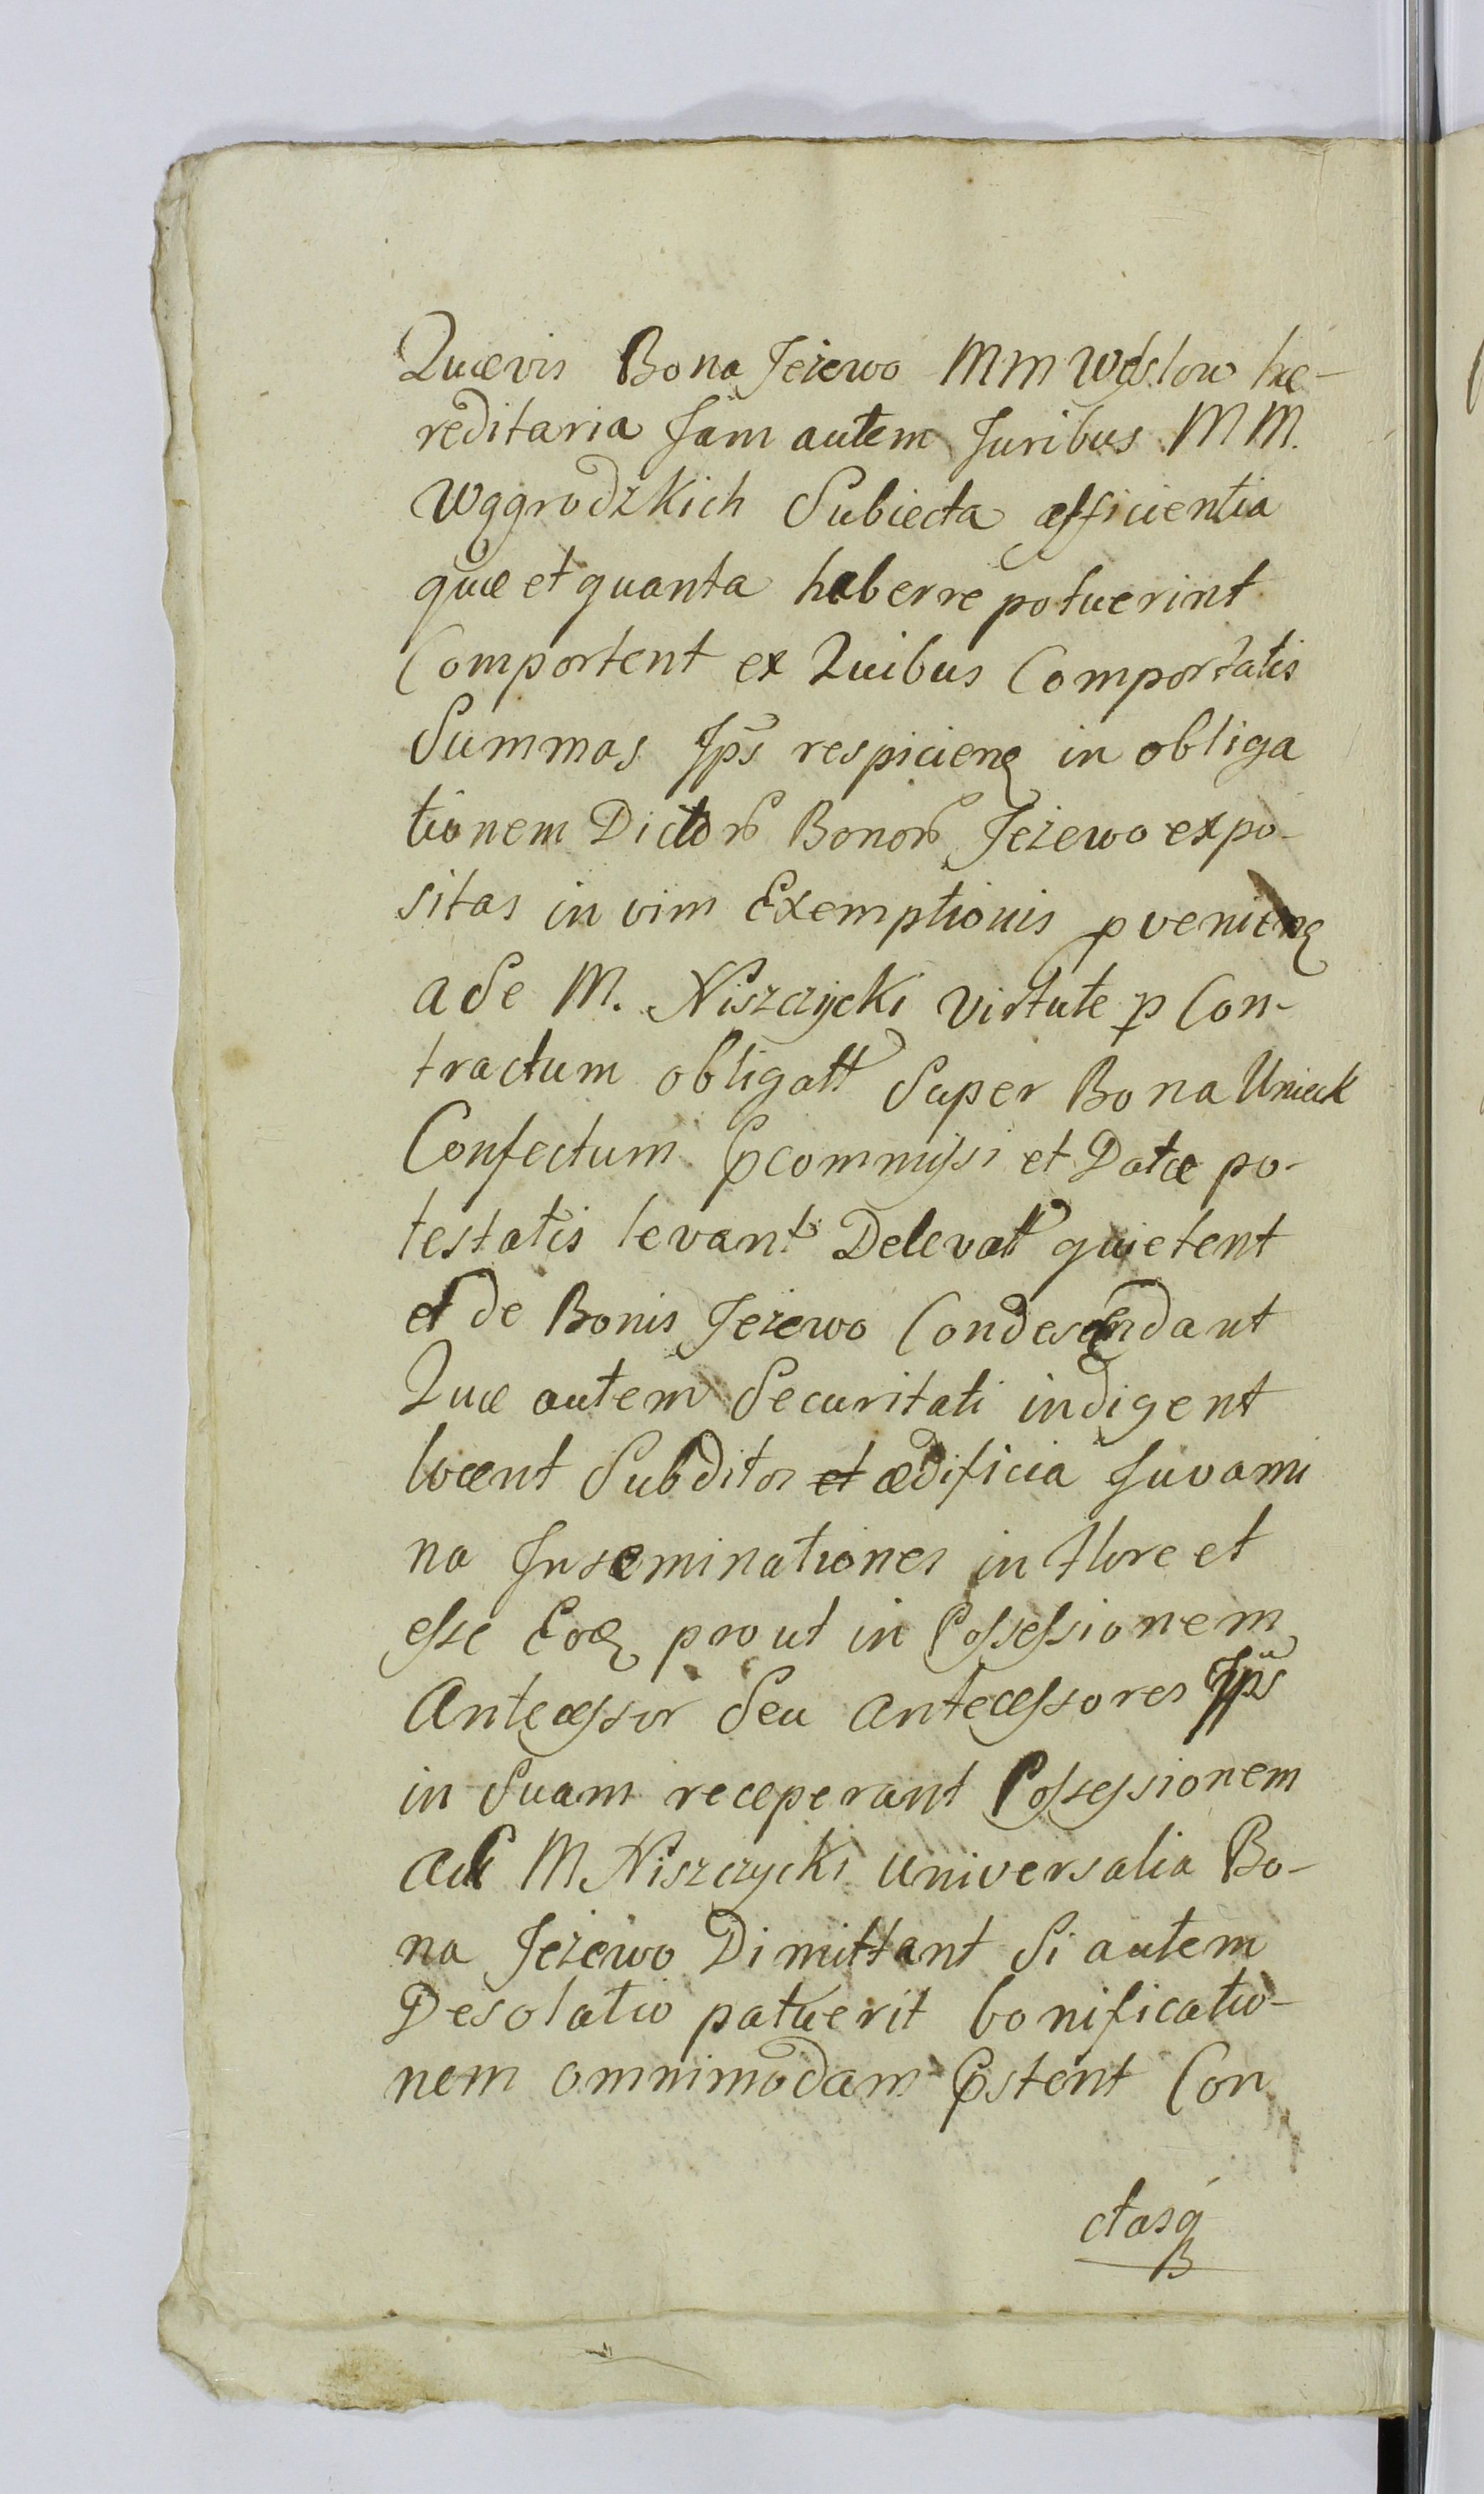 Quævis Bona Jeżewo MM Wdslow hæ-
reditaria Jam autem Juribus MM.
Wggrodzkich Subiecta afficientia
quæ et quanta haberre potuerint
Comportent ex Quibus Comportatis
Summas Jps respicien in obliga
tionem Dictor Bonor Jeżewo expo-
sitas in vim Exemptionis pvenien
a Se M. Niszczycki virtute p Con-
tractum obligatt Super Bona Unieck
Confectum commissi et Datæ po-
testatis levant Delevatt quietent
et de Bonis Jeżewo Condescendant
Quæ autem Securitati indigent
locent Subditos et ædificia Juvami
na Inseminationes in flore et
esse prout in Possessionem
Antecessor Seu Antecessores Jps
in Suam receperant Possessionem
M Niszczycki universalia Bo-
na Jeżewo Dimittant Si autem
Desolatio patuerit bonificatio-
nem omnimodam stent Con
ctasq